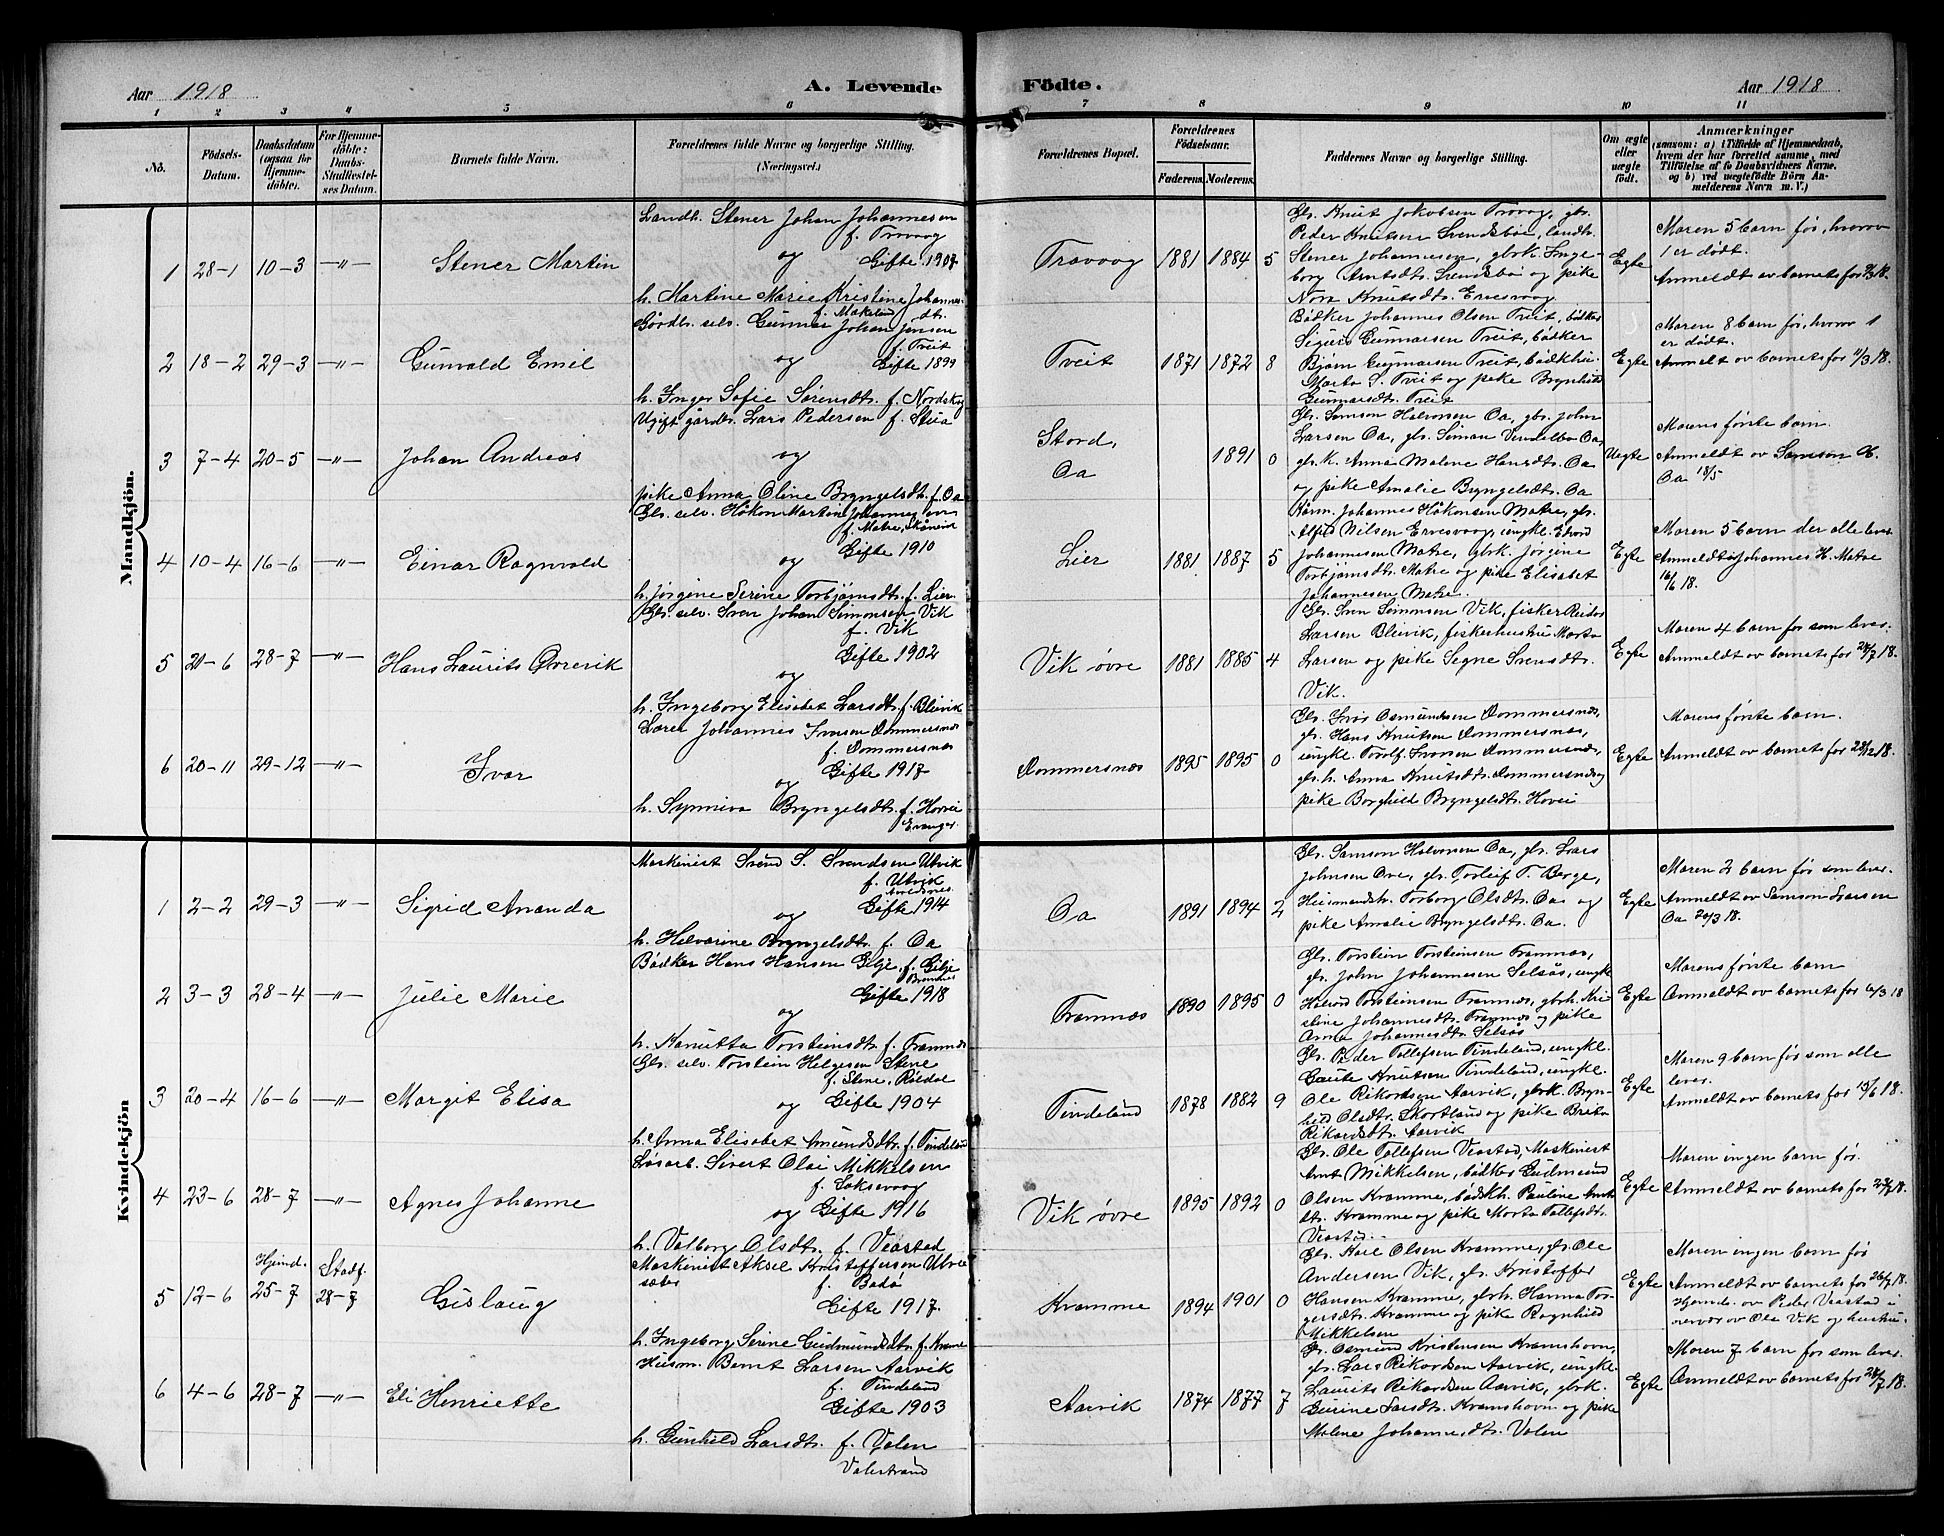 Aar 1918
A. Levende
Födte.
Aar 1918
1 2 3 4 5 6 7 8 9 10 11
No.
Födsels-
Datum.
Daabsdatum
(ogsaa for
Hjemme-
döbte).
For Hjemme-
döbte:
Daabs-
Stadfæstel-
ses Datum.
Barnets fulde Navn.
Forældrenes fulde Navne og borgerlige Stilling.
(Næringsvei.)
Forældrenes Bopæl.
Forældrenes
Födselsaar.
Faderens. Moderens.
Faddernes Navne og borgerlige Stilling.
Om ægte
eller
uægte
født.
Anmærkninger
(saasom: a) i Tilfælde af Hjemmedaab,
hvem der har forrettet samme, med
Tilföielse af to Daabsvidners Navne.
og b) ved uægtefödte Börn An-
melderens Navn m. V.)
Mandkjön.
1 28-1 10-3 -"- Stener Martin
Landh. Stener Johan Johannesen
f. Trovaag
og Gifte 1907
h. Martine Marie Kristine Johannes-
dtr. f. Mækeland
Trovaag 1881 1884 5
Gbr. Knut Jakobsen Trovaag, gbr.
Peder Knutsen Svendsbøe, landh.
Stener Johannesen, gbrk. Inge-
borg Arntsdtr. Svendsbøe og pike
Nora Knutsdtr. Ervesvaag
Egte
Moren 5 barn før, hvorav
1 er dødt.
Anmeldt av barnets far
2 18-2 29-3 -"- Gunvald Emil
Gårdb. selv. Gunnar Johan Jensen
f. Tveit
og Gifte 1899
h. Inger Sofie Sørensdtr. f. Nordskog
Tveit 1871 1872 8
Bødker Johannes Olsen Tveit, bødker
Sigurd Gunnarsen Tveit, bødker
Bjørn Gunnarsen Tveit, bødkhu.
Marta S. Tveit og pike Brynhild
Gunnarsdtr. Tveit
Egte
Moren 8 barn før, hvorav 1
er dødt.
Anmeldt av barnets far 11/3 18.
3 7-4 20-5 -"- Johan Andreas
Ugift gårdbr. Lars Pedersen f. Stua
og
pike Anna Oline Bryngelsdtr. f. Oa
Stord,
Oa
1891 0
Gbr. Samson Halvorsen Oa, gbr. John
Larsen Oa, gbr. Simon Vendelbo Oa,
gbr.k. Anna Malene Hansdtr. Oa
og pike Amalie Bryngelsdtr. Oa
Uegte
Morens første barn.
Anmeldt av Samson H.
Oa 18/5
4 10-4 16-6 -"- Einar Ragnvald
Gbr. selv. Håkon Martin Johannesen
f. Matre, Skånevik
og Gifte 1910
h. Jørgine Serine Torbjørnsdtr. f. Lier
Lier 1881 1887 5
Kårm. Johannes Håkonsen Matre, gbr.
Alfred Nilsen Ervesvaag, ungk. Edvard
Johannesen Matre, gbrk. Jørgine
Torbjørnsdtr. Matre og pike Elisabet
Johannesen Matre.
Egte
Moren 5 barn der alle lever
Anmeldt av Johannes H. Matre
16/6 18.
5 21-6 28-7 -"- Hans Laurits Øvrevik
Gbr. selv. Sven Johan Simonsen Vik
f. Vik
Gifte 1902
og
h. Ingeborg Elisabet Larsdtr. f. Bleivik
Vik øvre 1881 1885 4
Gbr. Sven Simonsen Vik, fisker Reidar
Larsen Bleivik, fiskerhustru Marta
Larsen og pike Segne Svensdtr.
Vik.
Egte
Moren 4 barn før som lever.
Anmeldt av barnets far 28/7 18.
6 20-11 29-12 -"- Ivar
Lærer Johannes Ivarsen Dommersnæs
f. Dommersnæs
Gifte 1917
og
h. Synneva Bryngelsdtr. f. Horvei
Evanger.
Dommersnæs 1895 1895 0
Gbr. Ivar Osmundsen Dommersnæs,
gbr. Hans Knutsen Dommersnæs,
ungk. Torolf Ivarsen Dommersnæs,
gbr. h. Anna Knutsdtr. Dommersnæs og
pike Borghild Bryngelsdtr. Hovei
Egte
Morens første barn.
Anmeldt av barnets far 29/12 18.
Kvindekjön
1 2-2 29-3 -"- Sigrid Ananda
Maskinist Svend S. Svendsen Utvik
f. Utvik
Avaldsnes
Gifte 1914
og
h. Halvarine Bryngelsdtr. f. Oa
Oa 1891 1894 2
Gbr. Samson Halvorsen Oa, gbr. Lars
Johnsen Ove, gbr. Torleif T. Berge,
Husmandsk. Torborg Olsdtr. Oa og
pike Amalie Bryngelsdtr. Oa.
Egte
Moren 2 barn før som lever.
Anmeldt av Samson Larsen
Oa 20/3 18.
2 3-3 28-4 -"- Julie Marie
Bødker Hans Hansen Gilje, f. Gilje
Gifte 1918
og
h. Hanutta Torsteinsdtr. f. Framnæs
Framnæs 1890 1895 0
Gbr. Torstein Torsteinsen Framnæs,
gbr. John Johannesen Selsås, ungk
Halvard Torsteinsen Framnæs, gbrh. Kri-
stine Johannesdtr. Framnæs og pike
Anna Johannesdtr. Selsås
Egte
Morens første barn
Anmeldt av barnets far
3 20-4 16-6 -"- Margit Elisa
Gbr. selv. Torstein Helgesen Stene
f. Stene, Röldal
og Gifte 1904
h. Anna Elisabet Amundsdtr. f. Tindeland
Tindeland 1878 1882 9
Gbr. Peder Tollefsen Tindeland, ungk.
Gaute Knutsen Tindeland, ungk.
Ole Rikardsen Aarvik, gbrk. Bryn-
hild Olsdtr. Skartland og pike Brita
Rikardsdtr. Aarvik
Egte
Moren 9 barn før som alle
lever.
Anmeldt av barnets far 15/6 18.
4 23-6 28-7 -"- Agnes Johanne
Løsarb. Sivert Olai Mikkelsen
f. Saksevaag
og Gifte 1916
h. Valborg Olsdtr. f. Veastad
Vik øvre 1895 1892 0
Gbr. Ole Tollefsen Veastad, Maskinist
Arnt Mikkelsen, bødker Gudmund
Olsen Kramme, bødkh. Pauline Arnt-
dtr. Kramme og pike Marta Tollefsdtr.
Veastad.
Egte
Moren ingen barn før.
Anmeldt av barnets far 23/7 18.
5 12-6 Hjemd. 25-7 Stadf. 28-7 Gislaug
Maskinist Aksel Kristoffersen Utvie
sæter f. Bodø
Gifte 1917.
h. Ingeborg Serine Gudmundsdtr. f. Kramme
Kramme 1894 1901 0
Gbr. Karl Olsen Kramme, gbr. Ole
Andersen Vik, gbr. Kristoffer
Hansen Kramme, gbrh. Hanna Tor-
gersdtr. Kramme og pike Ragnhild
Mikkelsen
Egte
Moren ingen barn før
Anmeldt av barnets far 26/7 18.
Hjemdø. av Peder Veastad i
nærvær av Ole Vik og hustru.
6 4-6 28-7 -"- Eli Henriette
Husm. Bernt Larsen Aarvik
f. Tindeland
Gifte 1903
h. Gunhild Larsdtr. f. Valen
Valestrand
Aarvik 1874 1877 7
Gbr. Osmund Kristensen Kramshovn,
gbr. Lars Rikardsen Aarvik, ungk.
Laurits Rikardsen Aarvik, gbrk.
Gurine Larsdtr. Kramshovn og pike
Malene Johannesdtr. Valen
Egte
Moren 7 barn før som lever.
Anmeldt av barnets far 28/7 18.